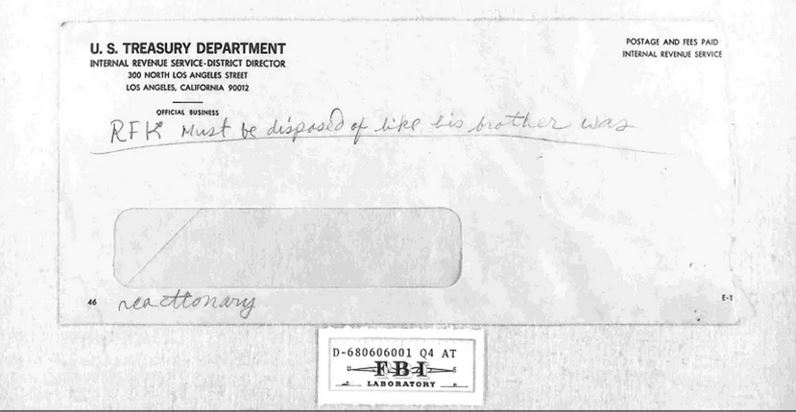 U. S. TREASURY DEPARTMENT
INTERNAL REVENUE SERVICE-DISTRICT DIRECTOR
300 NORTH LOS ANGELES STREET
LOS ANGELES, CALIFORNIA 90012
OFFICIAL BUSINESS
POSTAGE AND FEES PAID
INTERNAL REVENUE SERVICE
RFK Must be disposed of like his brother was
46
reactionary
E-1
D-680606001 Q4 AT
FBI
LABORATORY